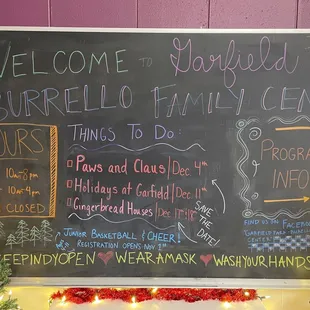 WELCOME TO Garfield
BURRELLO FAMILY CEN
OURS
10am-8pm
10am-4pm
CLOSED
THINGS TO DO:
PAWS AND CLAWS/DEC 4th
HOLIDAYS AT GARFIELD/DEC 11th
GINGERBREAD HOUSES/DEC
SAVE
THE
DATE!
JUNIOR BASKETBALL & CHEER!
REGISTRATION OPENS NOV 1st
PROGRA
INFO
FIND US ON FACEBOO
GARFIELD PARK
CENTER
KEEPINDYOPEN ♥ WEARAMASK ♥ WASHYOURHANDS